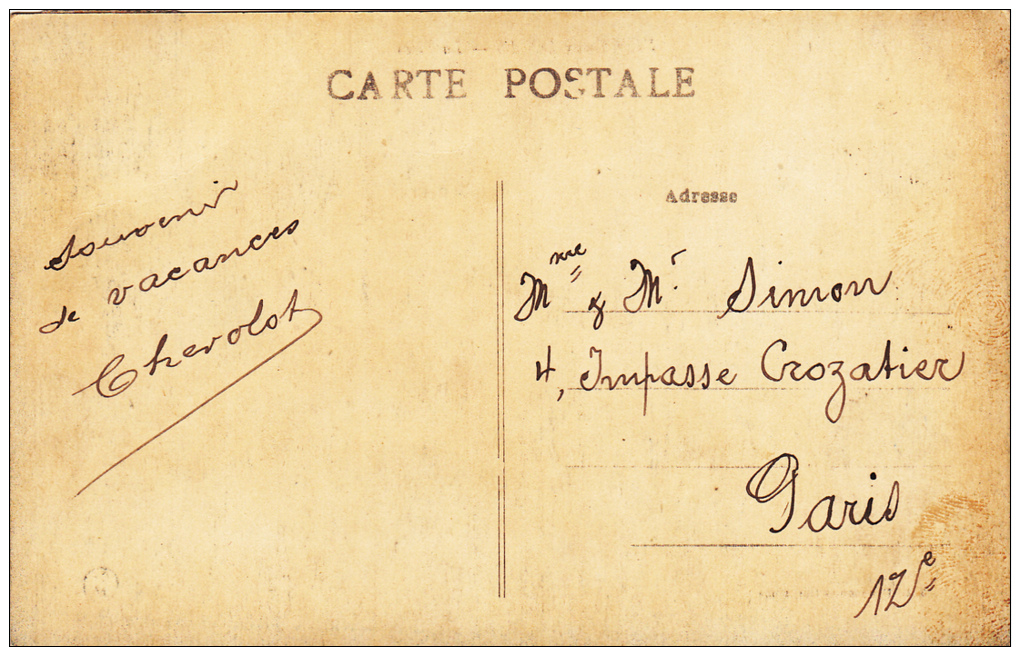 CARTE POSTALE
Souvenir
de vacances
Cherolot
Adresse
Mme & Mr Simon
4, Impasse Crozatier
Paris
12e